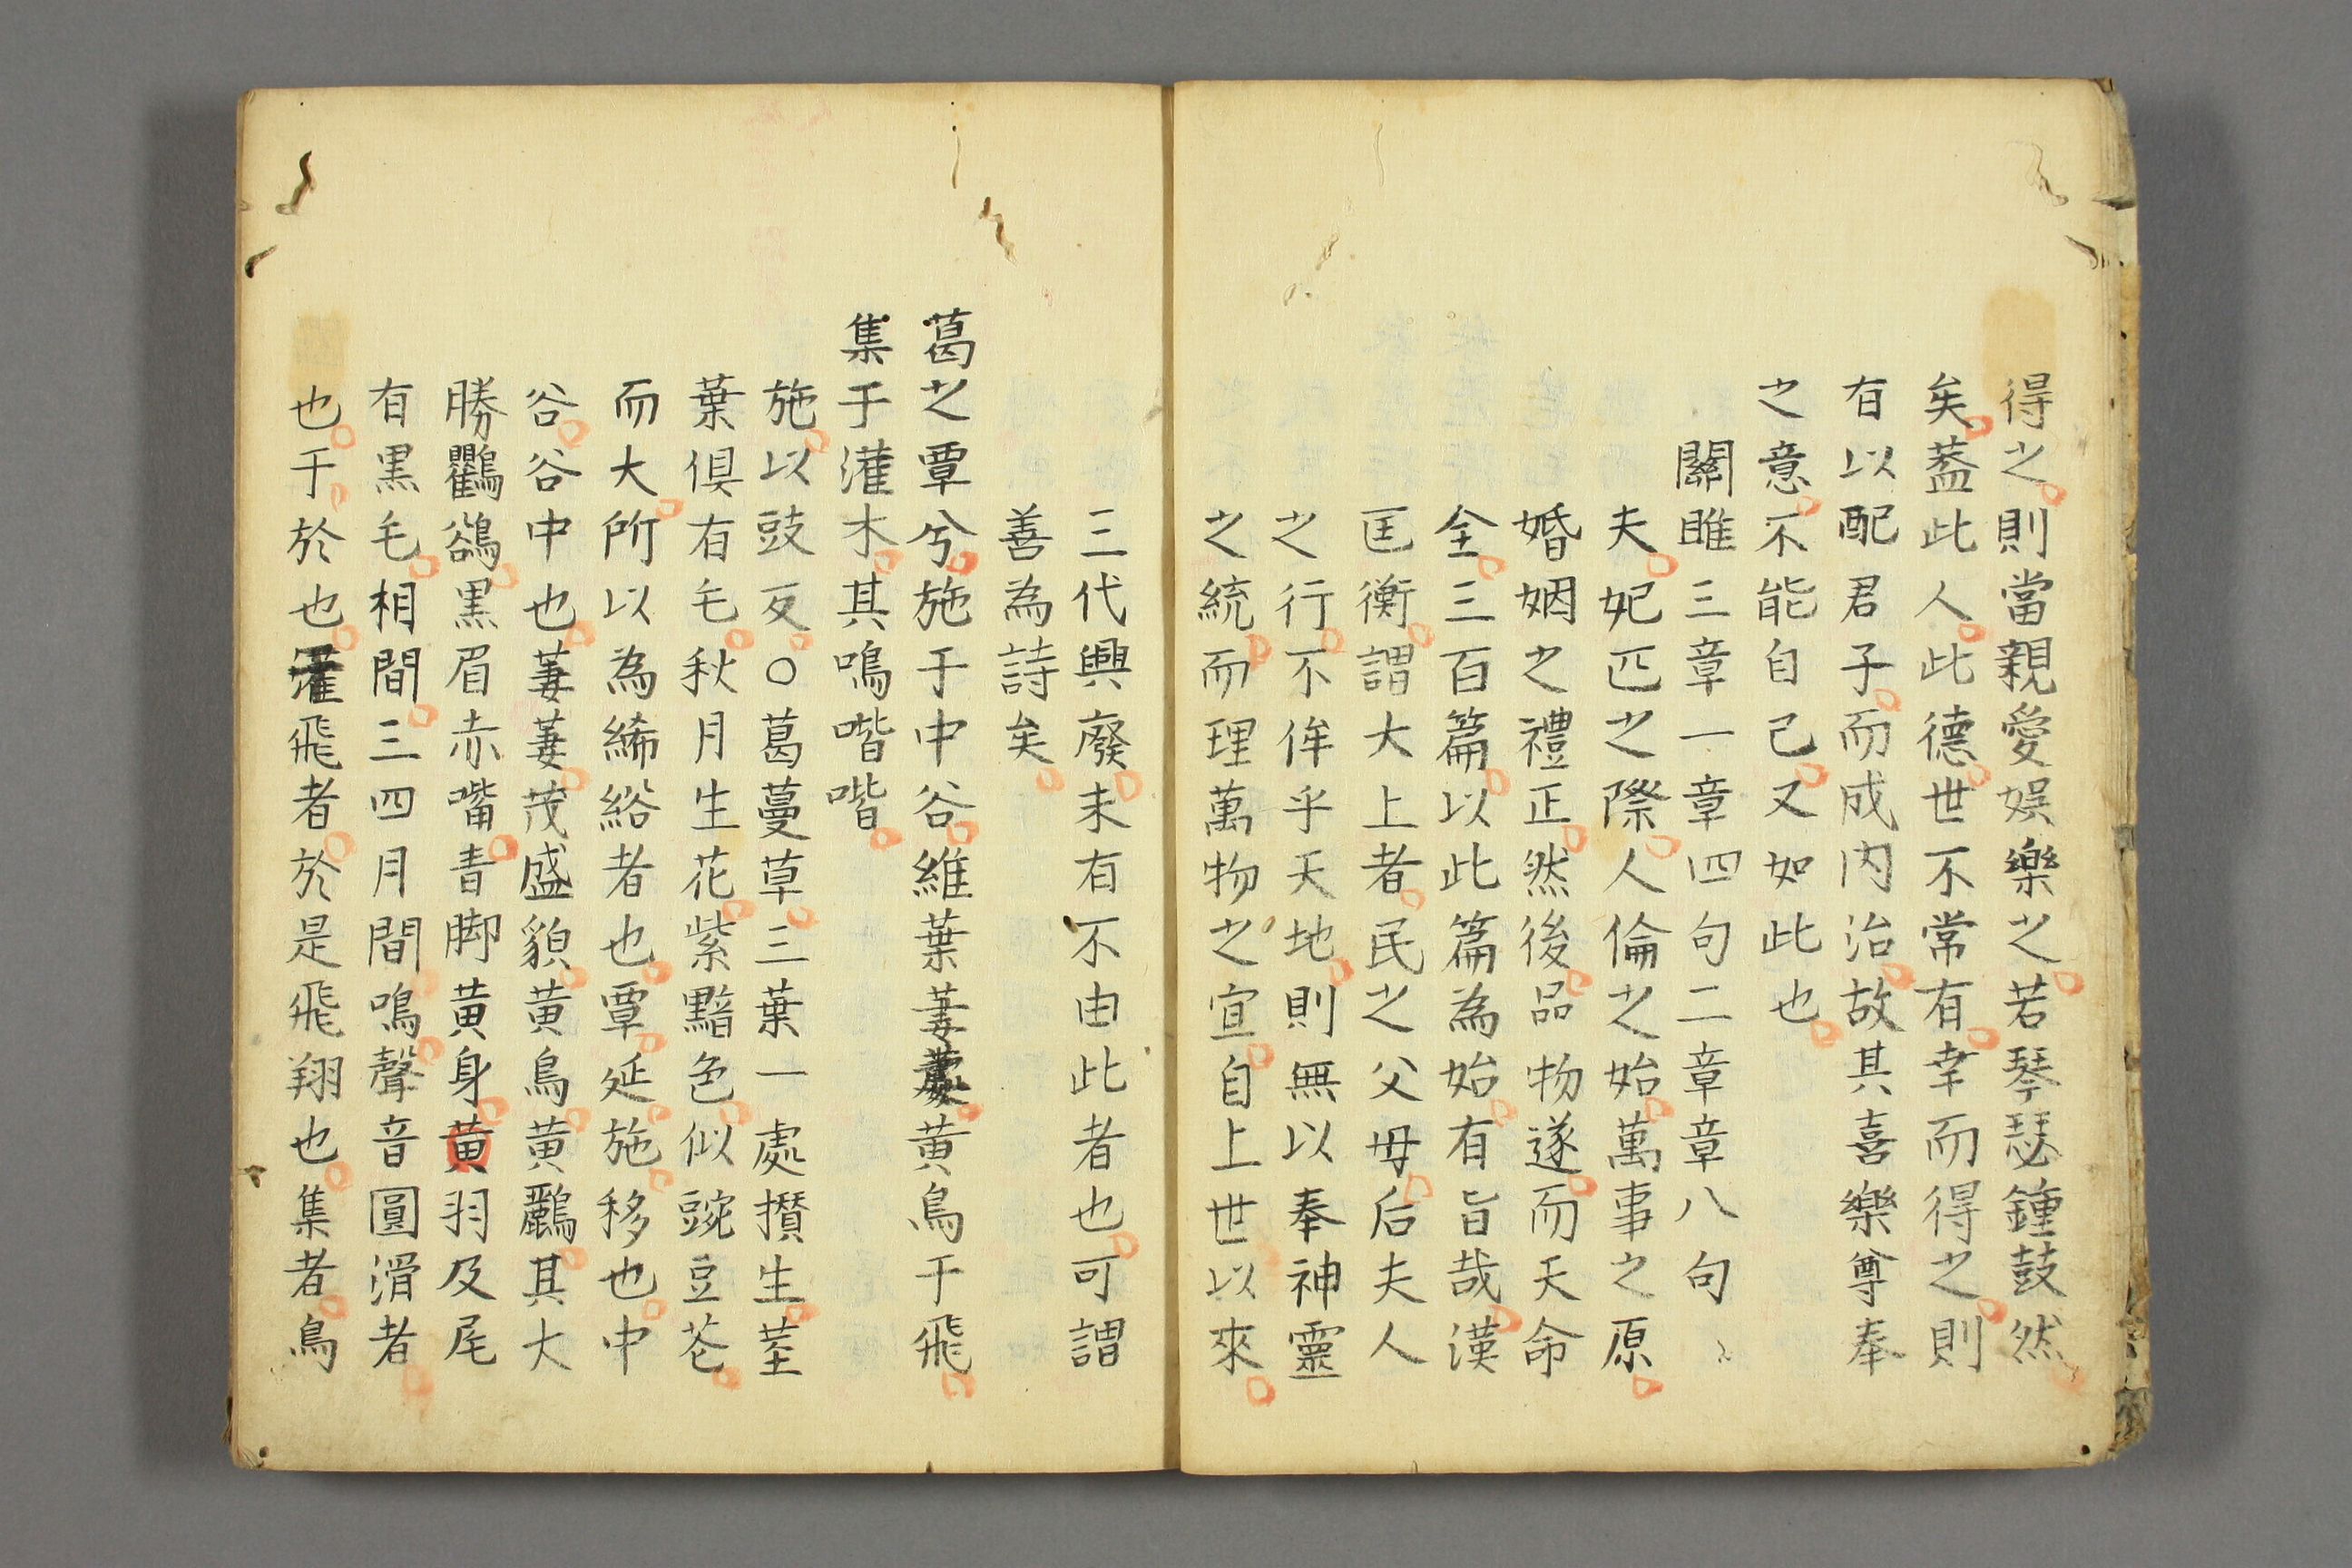 得之則當親愛娯樂之若琴瑟鍾鼓然
矣葢此人此德世不常有幸而得之則
有以配君子而成内治故其喜樂尊奉
之意不能自己又如此也
關雎三章一章四句二章章八句
夫妃匹之際人倫之始萬事之原
婚姻之禮正然後品物遂而天命
全三百篇以此篇為始有旨哉漢
匡衡謂大上者民之父母后夫人
之行不侔乎天地則無以奉神靈
之統而理萬物之宜自上世以來
三代興廢未有不由此者也可謂
善為詩矣
葛之覃兮施于中谷維葉萋萋黄鳥于飛
集于灌木其鳴喈喈
施以豉反○葛蔓草三葉一處攅生莖
葉俱有毛秋月生花紫黯色似豌豆花
而大所以為絺綌者也覃延施移也中
谷谷中也萋萋茂盛貌黄鳥黄鸝其大
勝鸜鵒黒眉赤嘴青脚黄身黄羽及尾
有黒毛相間三四月間鳴聲音圓滑者
也于於也飛者於是飛翔也集者鳥